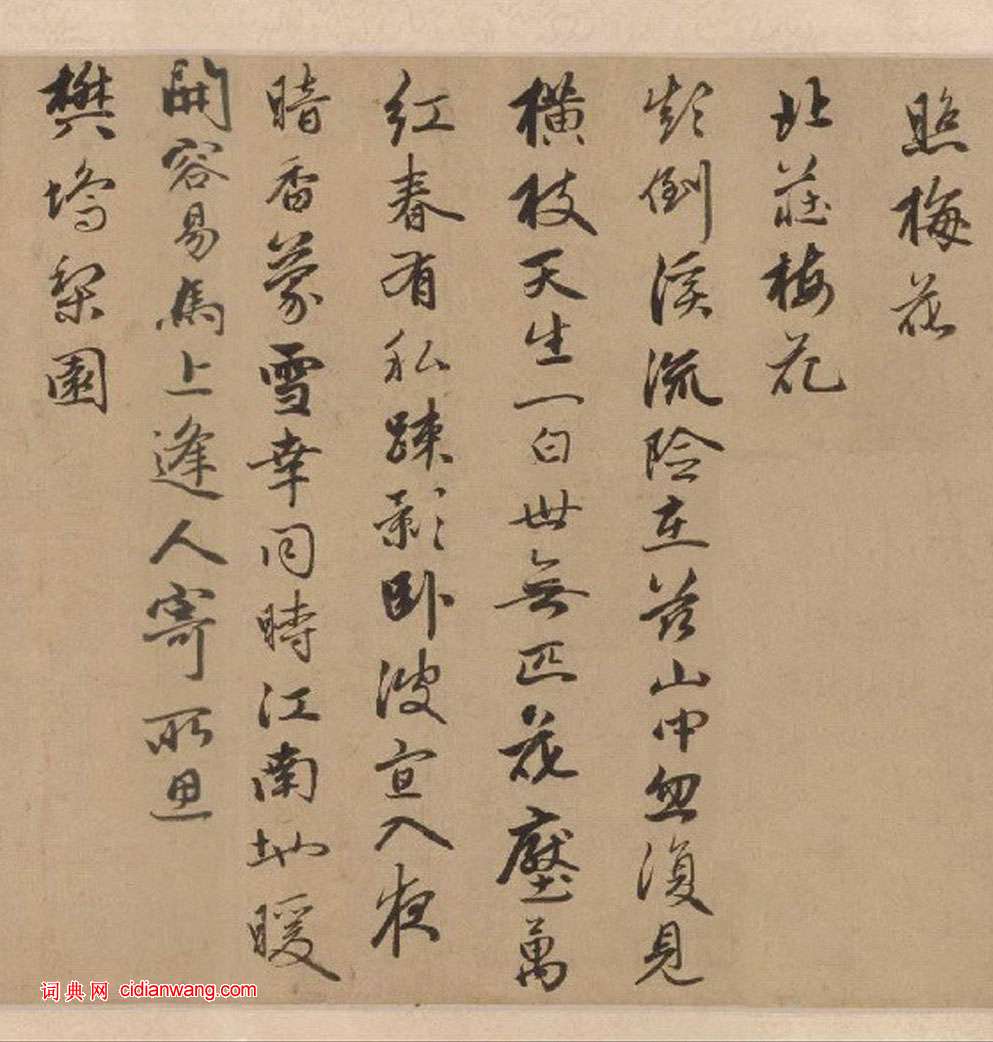 照梅花
北莊梅花
欹倒溪流險在茲山中忽復見
橫枝天生一白世無匹花壓萬
紅春有私疎影臥波宜入夜
暗香蒙雪幸同時江南地暖
開容易馬上逢人寄所思
樊塢梨園
词典网 cidianwang.com